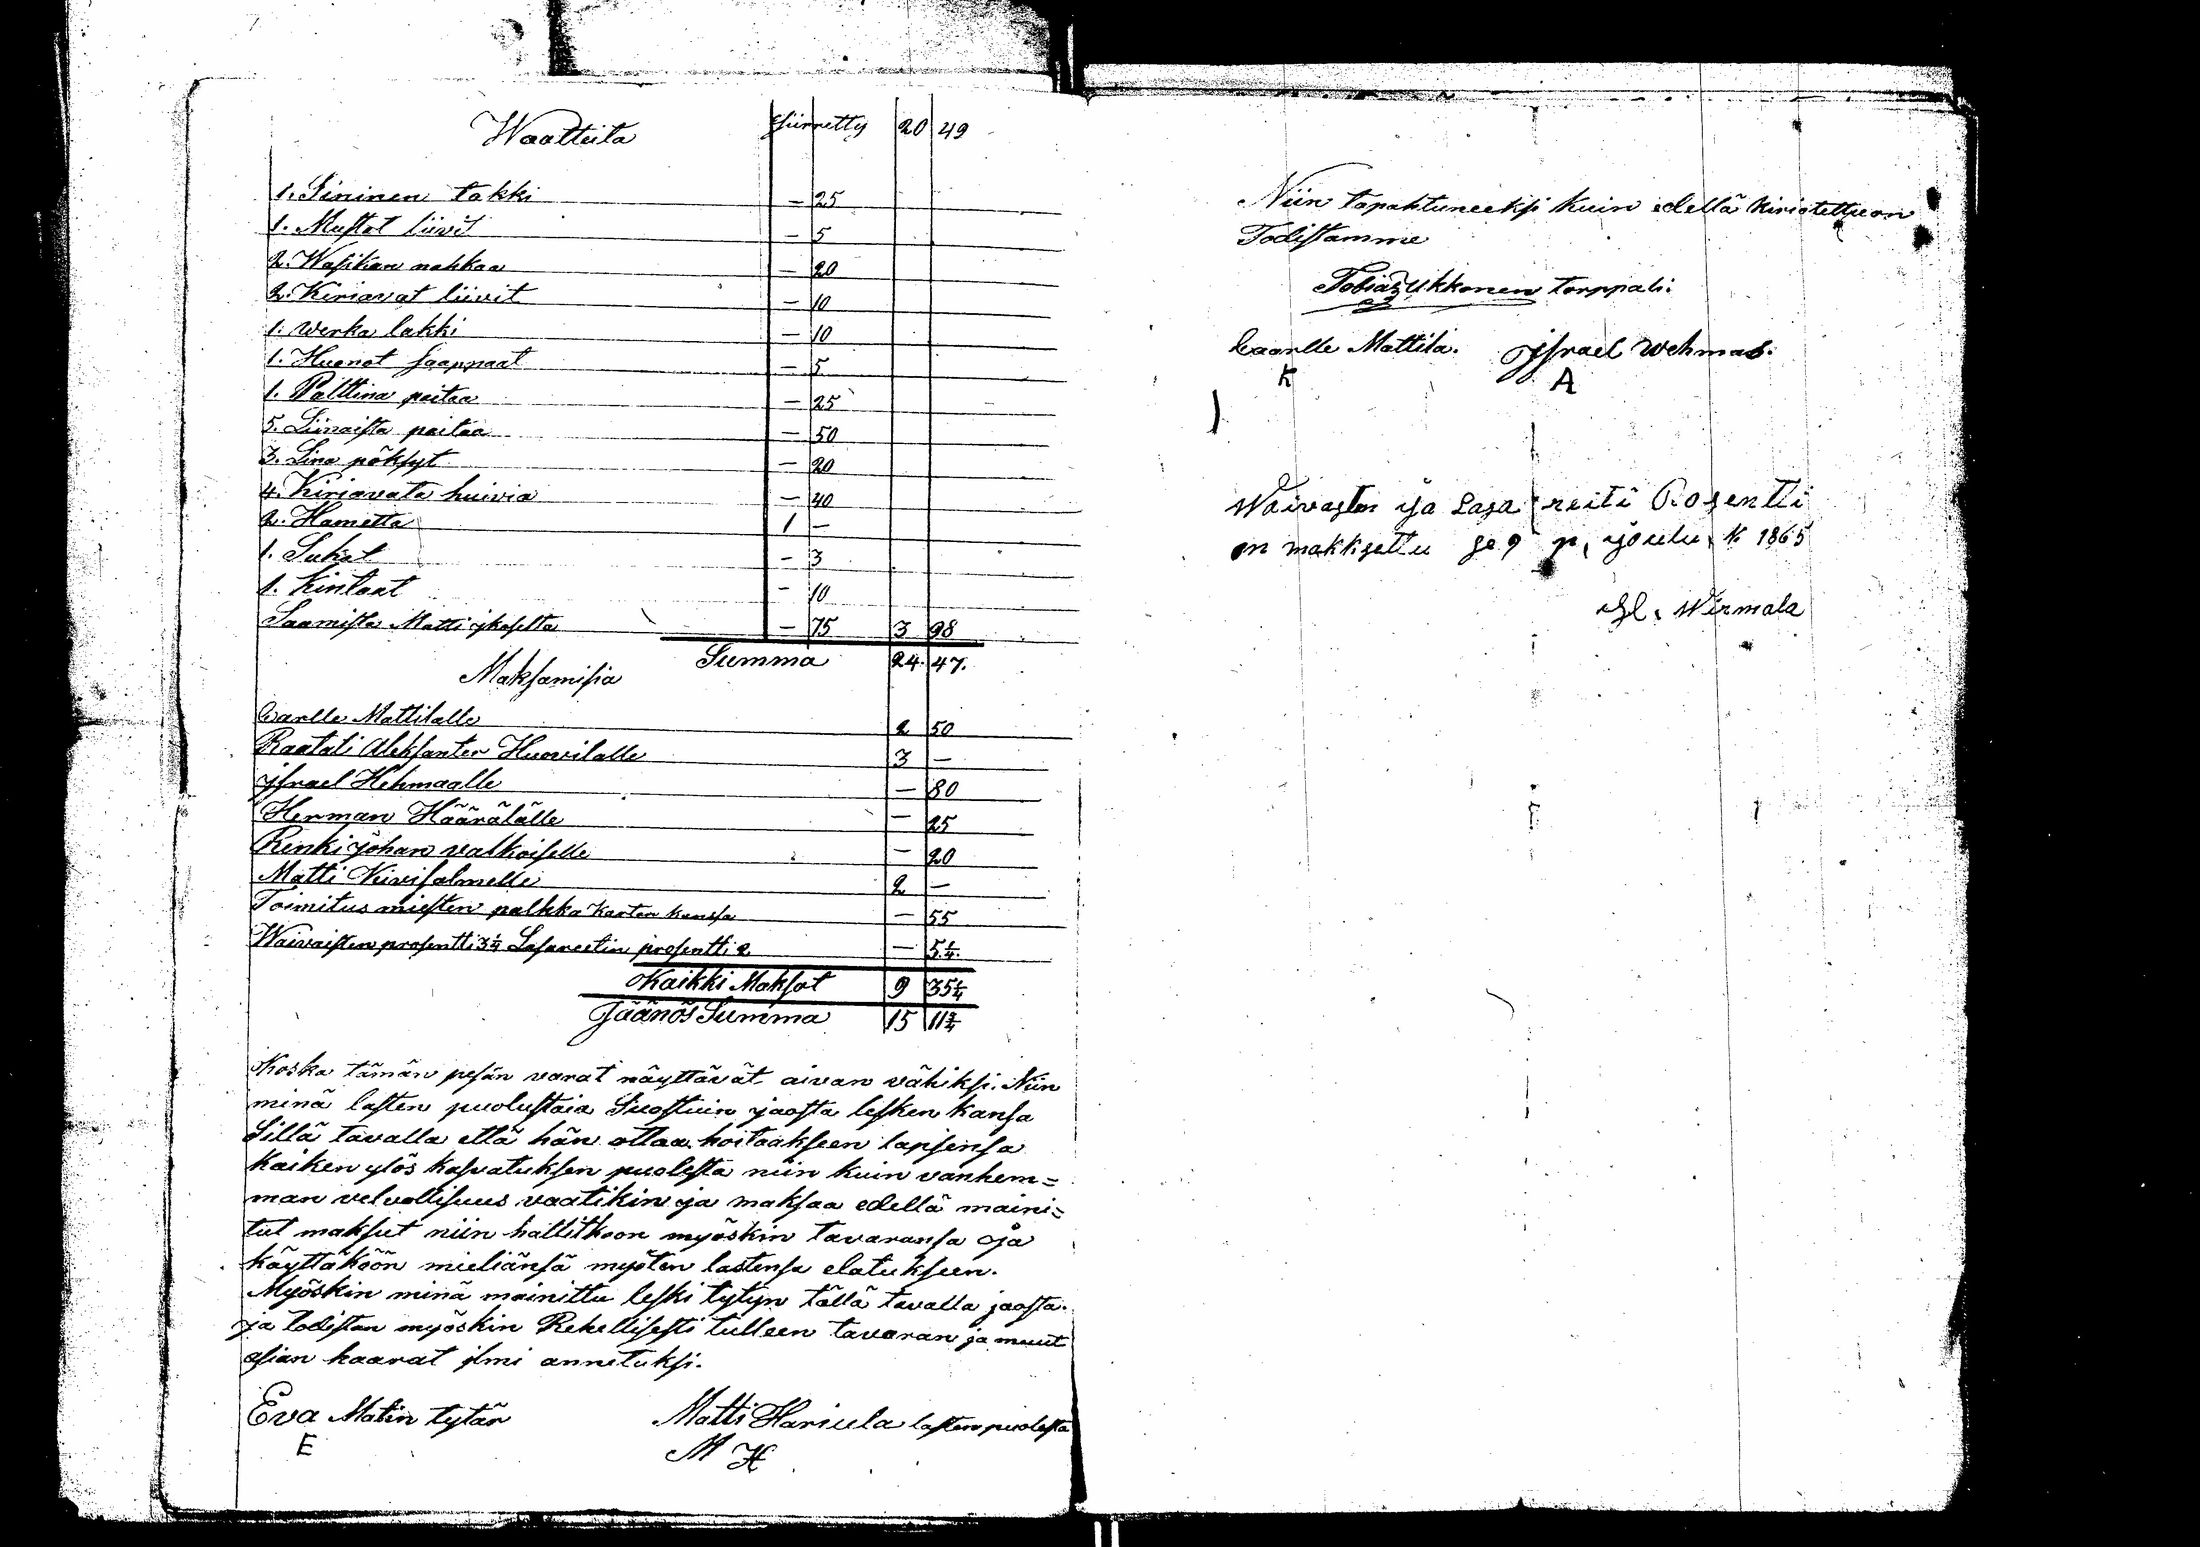 Waatteita Siirretty 20 49
1. Sininen takki – 25
1. Mustat liivit – 5
2. Wasikan nahkaa – 20
2. Kiriavat liivit – 10
1. Werka lakki – 10
1. Huonot saappaat – 5
1. Palttina paitaa – 25
5. Liinaista paitaa – 50
3. Lina pöksyt – 20
4. Kiriavata huivia – 40
2. Hametta 1 –
1. Sukat – 3
1. Kintaat – 10
Saamista Matti – 75 3 98
Summa 24. 47.
Maksamisia
Carlle Mattilalle 2 50
Raatali Aleksanter Huovilalle 3 –
Jsrael Hehmaalle – 80
Herman Häärälälle – 25
Renki Johan valkoiselle – 20
Matti Kivisalmelle 2 –
Toimitus miesten palkka kartan kanssa – 55
Waivaisten prosentti 3¼ Lasareetin prosentti 2 – 5¼.
Kaikki Maksot 9 35¼
Jäänös Summa 15 11¾
Koska tämän pesän varat näyttävät aivan vähiksi. Niin
minä lasten puolustaia Suostuin jaosta lesken kansa
Sillä tavalla että hän ottaa hoitaakseen lapsensa
kaiken ylös kasvatuksen puolesta niin kuin vanhem=
man velvollisuus vaatikin ja maksaa edellä maini=
tut maksut niin hallitkoon myöskin tavaransa ja
käyttäköön mieliänsä myöten lastensa elatukseen.
Myöskin minä mainittu leski tytyn tällä tavalla jaosta.
ja todistan myöskin Rehellisesti tulleen tavaran ja muut
asian haarat ilmi annetuksi.
Eva Matin tytär Matti Hariula lasten puolesta
E M H
Niin tapahtuneeksi kuin edellä kiriotettu on
Todistamme
Tobias Ukkonen torppali.
Caarlle Mattila. Jsrael Wehmas.
K A
Waivasten ja Lasareiti Rosentti
on makksettu se 9 p, joulu k 1865
Wirmala